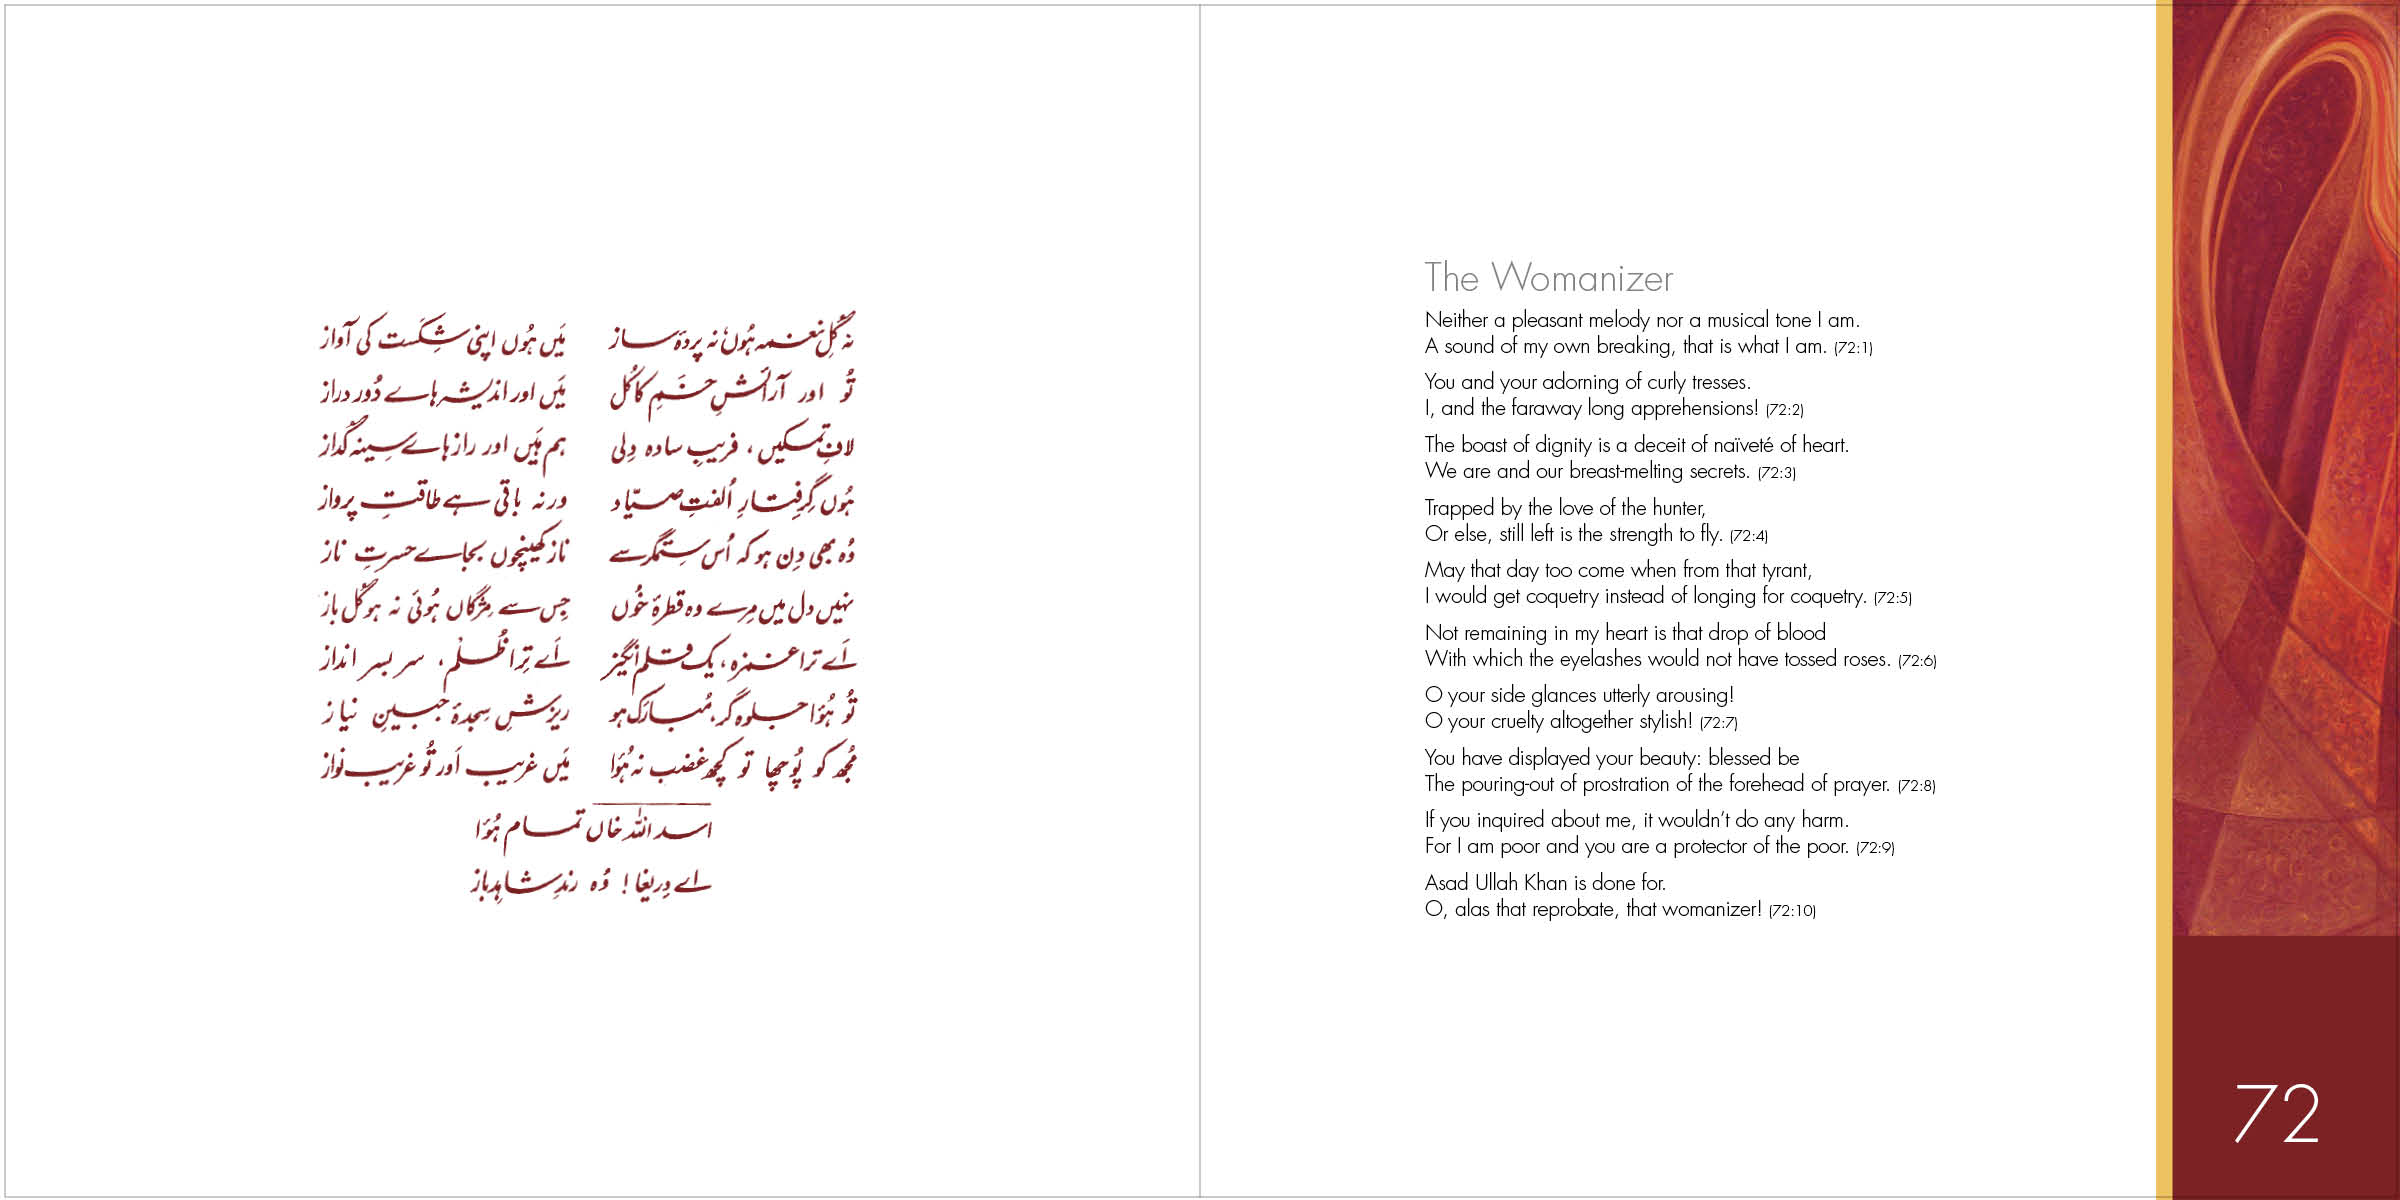 نہ گُلِ نغمہ ہُوں نہ پردۂ ساز
مَیں ہُوں اپنی شِکَست کی آواز
تُو اور آرائشِ خَمِ کاکُل
مَیں اور اندیشہ ہاے دُور دراز
لافِ تمکیں، فریبِ سادہ دِلی
ہم ہَیں اور راز ہاے سِینہ گداز
ہُوں گِرِفتارِ اُلفتِ صیّاد
ورنہ باقی ہے طاقتِ پرواز
وُہ بھی دِن ہو کہ اُس سِتمگر سے
ناز کھینچوں بجاے حسرتِ ناز
نہیں دل میں مِرے وہ قطرۂ خُوں
جِس سے مِژگاں ہُوئی نہ ہو گُل باز
اَے ترا غمزہ، یک قلم انگیز
اَے تِرا ظُلم، سر بسر انداز
تُو ہُوَا جلوہ گر، مُبارَک ہو
ریزشِ سِجدۂ جبینِ نیاز
مُجھ کو پُوچھا تو کچھ غضب نہ ہُوَا
مَیں غریب اَور تُو غریب نواز
اسد اللہ خاں تمام ہُوَا
اے دِریغا! وُہ رندِ شاہِد باز
The Womanizer
Neither a pleasant melody nor a musical tone I am.
A sound of my own breaking, that is what I am. (72:1)
You and your adorning of curly tresses.
I, and the faraway long apprehensions! (72:2)
The boast of dignity is a deceit of naïveté of heart.
We are and our breast-melting secrets. (72:3)
Trapped by the love of the hunter,
Or else, still left is the strength to fly. (72:4)
May that day too come when from that tyrant,
I would get coquetry instead of longing for coquetry. (72:5)
Not remaining in my heart is that drop of blood
With which the eyelashes would not have tossed roses. (72:6)
O your side glances utterly arousing!
O your cruelty altogether stylish! (72:7)
You have displayed your beauty: blessed be
The pouring-out of prostration of the forehead of prayer. (72:8)
If you inquired about me, it wouldn't do any harm.
For I am poor and you are a protector of the poor. (72:9)
Asad Ullah Khan is done for.
O, alas that reprobate, that womanizer! (72:10)
72